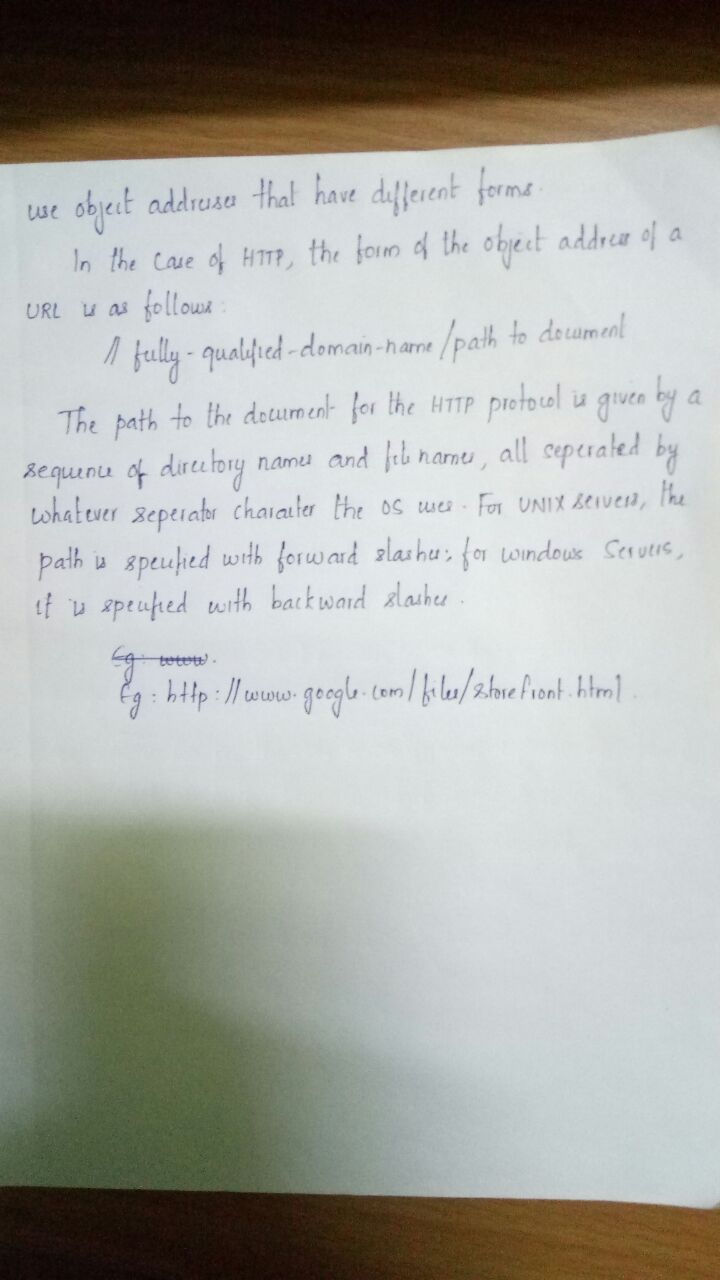 use object addresses that have different forms.
In the case of HTTP, the form of the object address of a
URL is as follows:
// fully-qualified-domain-name/path to document
The path to the document for the HTTP protocol is given by a
sequence of directory names and file names, all seperated by
whatever seperator character the OS uses. For UNIX servers, the
path is specified with forward slashes; for windows servers,
it is specified with backward slashes.
Eg: www.
Eg: http://www.google.com/files/storefront.html.